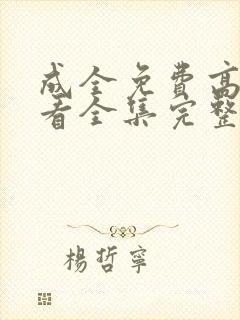 成全免费高
看全集完整
楊哲寧